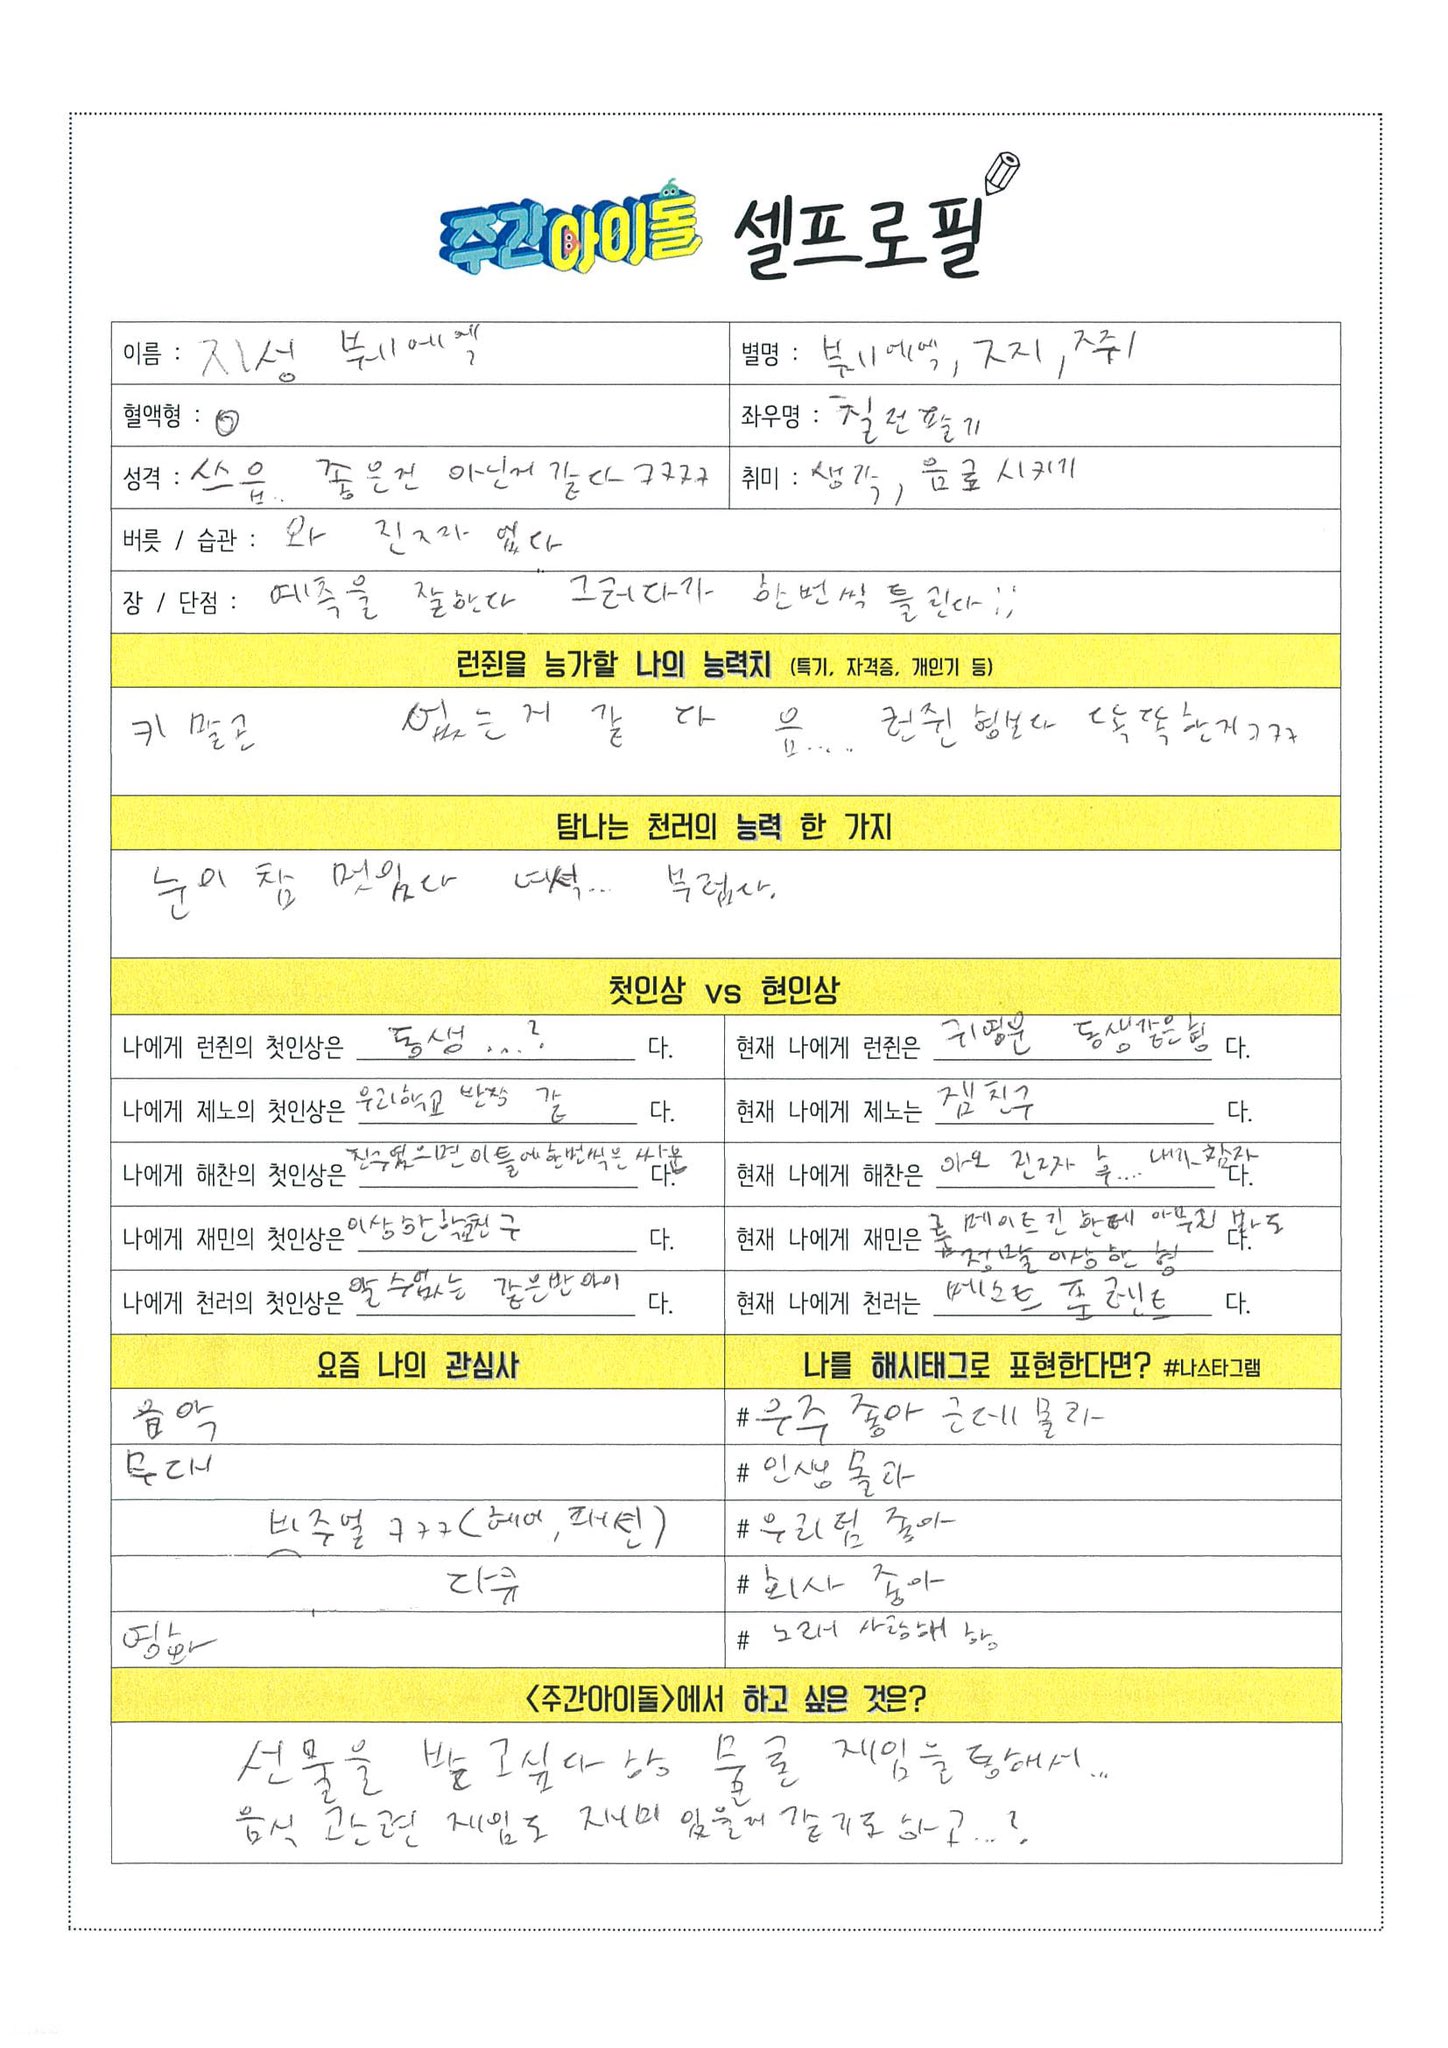 주간아이돌 셀프로필
이름 : 지성 뷔시에엑
별명 : 뷔시에엑, 지지, 쥐
혈액형 : O
좌우명 : 칠런
성격 : 쓰읍.. 좋은건 아닌거 같다 ㅋㅋㅋㅋ
취미 : 생각, 음료 시키기
버릇 / 습관 : 와 진짜 없다
장 / 단점 : 예측을 잘한다 그러다가 한번씩 틀린다;;
런쥔을 능가할 나의 능력치 (특기, 자격증, 개인기 등)
키 말곤 없는거 같다 음..... 런쥔 형보다 똑똑한지ㅋㅋㅋ
탐나는 천러의 능력 한 가지
눈이 참 멋있다 녀석... 부럽다.
첫인상 vs 현인상
나에게 런쥔의 첫인상은 동생 ...? 다.
현재 나에게 런쥔은 귀염뿐 동생같은형 다.
나에게 제노의 첫인상은 우리학교 반장 같 다.
현재 나에게 제노는 찜친구 다.
나에게 해찬의 첫인상은 친구였으면 이틀에한번씩은 싸움 다.
현재 나에게 해찬은 아오 진짜 후.... 내가참자 다.
나에게 재민의 첫인상은 이상한학교친구 다.
현재 나에게 재민은 룸메이트긴 한데 아무리 봐도
정말 이상한 형 다.
나에게 천러의 첫인상은 알 수없는 같은반아이 다.
현재 나에게 천러는 베스트 프렌드 다.
요즘 나의 관심사
나를 해시태그로 표현한다면? #나스타그램
음악
# 우주 좋아 근데 몰라
무대
# 인생 몰라
비주얼 ㅋㅋㅋ(헤어, 패션)
# 우리팀 좋아
다큐
# 회사 좋아
영화
# 노래 사랑해 하하
<주간아이돌>에서 하고 싶은 것은?
선물을 받고싶다 하하 물론 게임을 통해서...
음식 관련 게임도 재미 있을거 같기도 하고...?